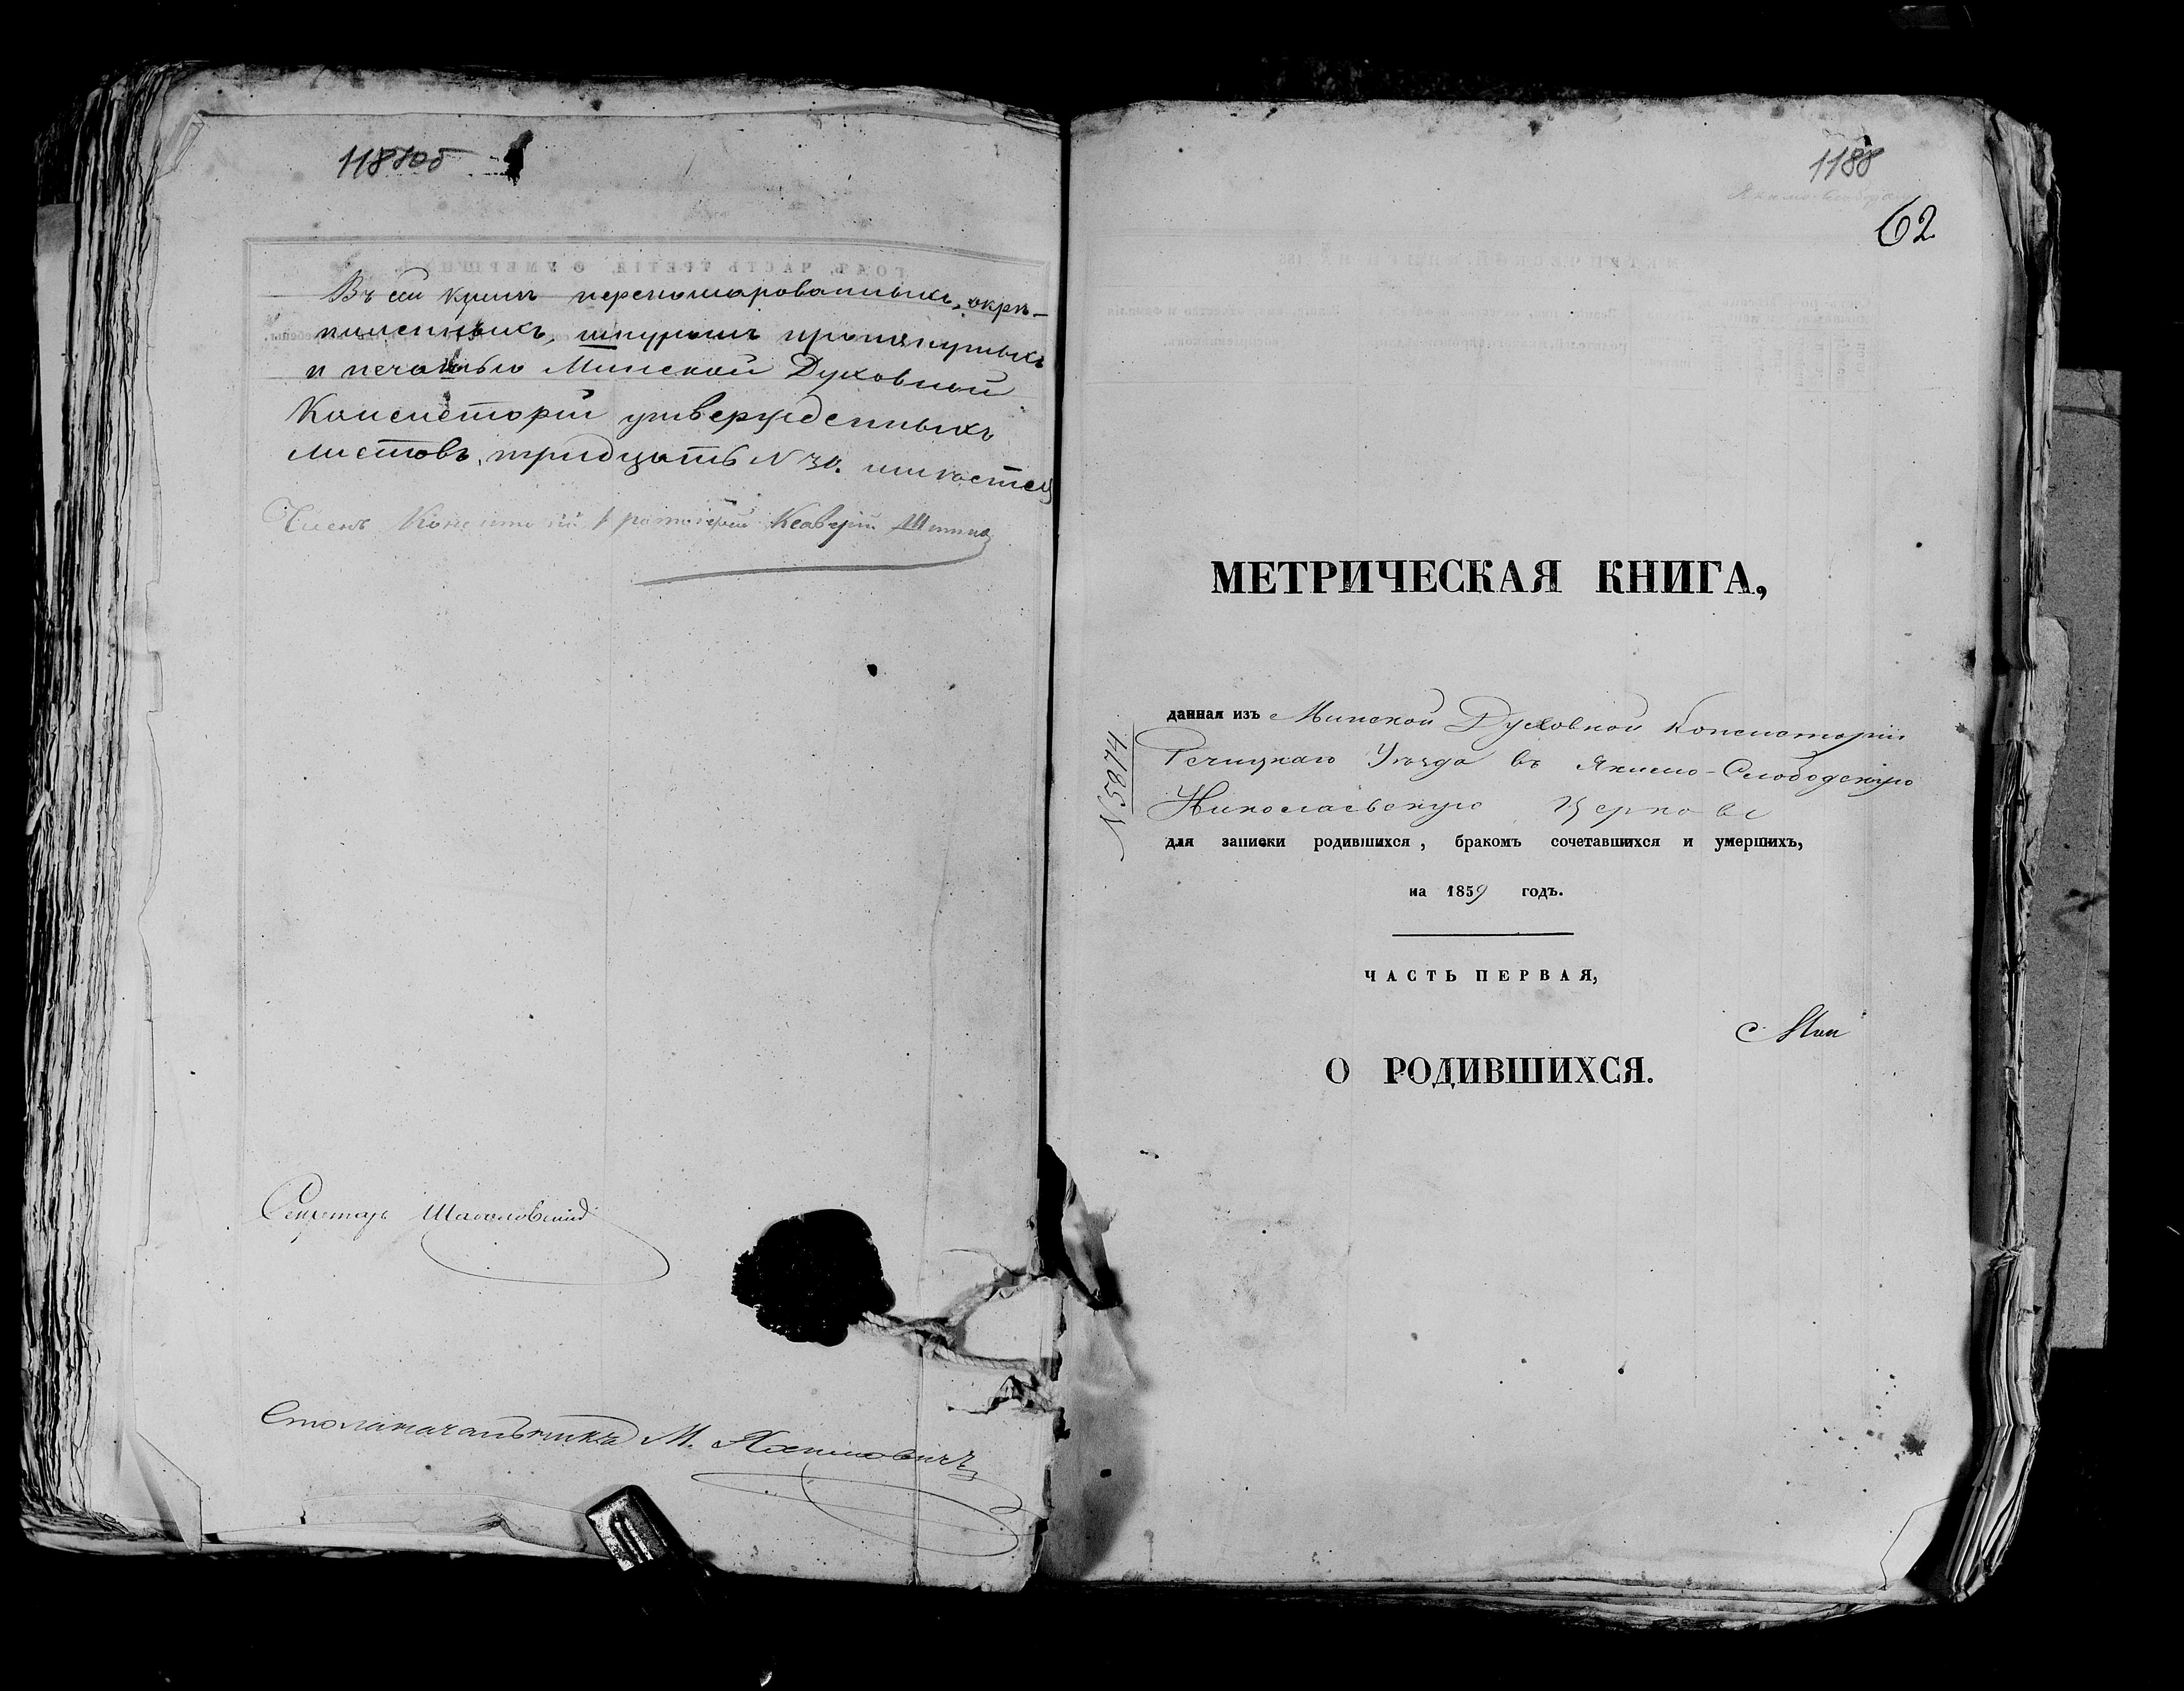 1188об
Въ сей книгѣ перенумерованныхъ, скрѣ-
пленныхъ, шнуромъ протянутыхъ
и печатью Минской Духовной
Консисторіи утвержденныхъ
листовъ, тридцать № 30.
Членъ Консисторіи Протоіерей
Секретарь
Столоначальникъ М.
1188
62
МЕТРИЧЕСКАЯ КНИГА,
данная изъ Минской Духовной Консисторіи
Речицкаго Уѣзда въ Якимо-Слободскую
Николаевскую Церковь
№ 5874
для записки родившихся, бракомъ сочетавшихся и умершихъ,
на 1859 годъ.
ЧАСТЬ ПЕРВАЯ,
О РОДИВШИХСЯ.